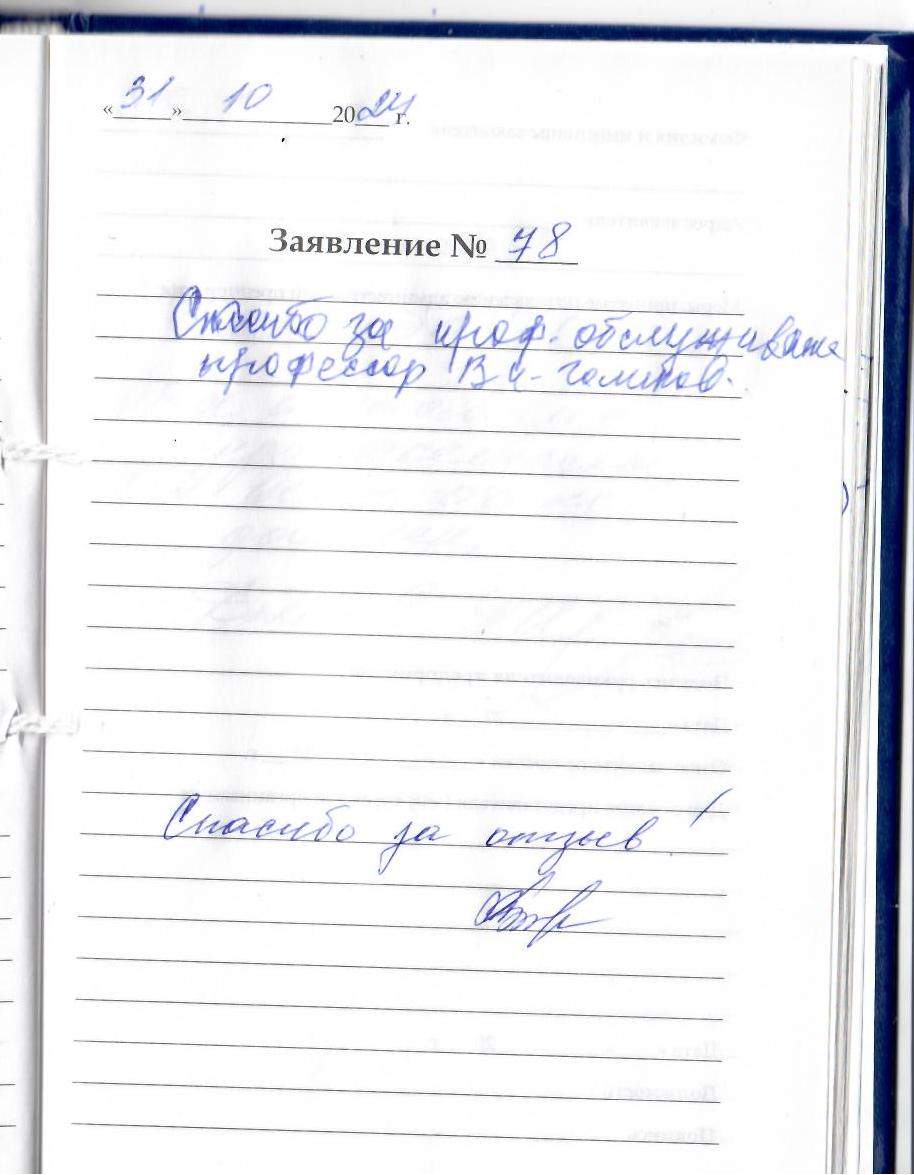 «31» 10 2024 г.
Заявление № 78
Спасибо за проф. обслуживание
профессор В
Спасибо за отзыв!